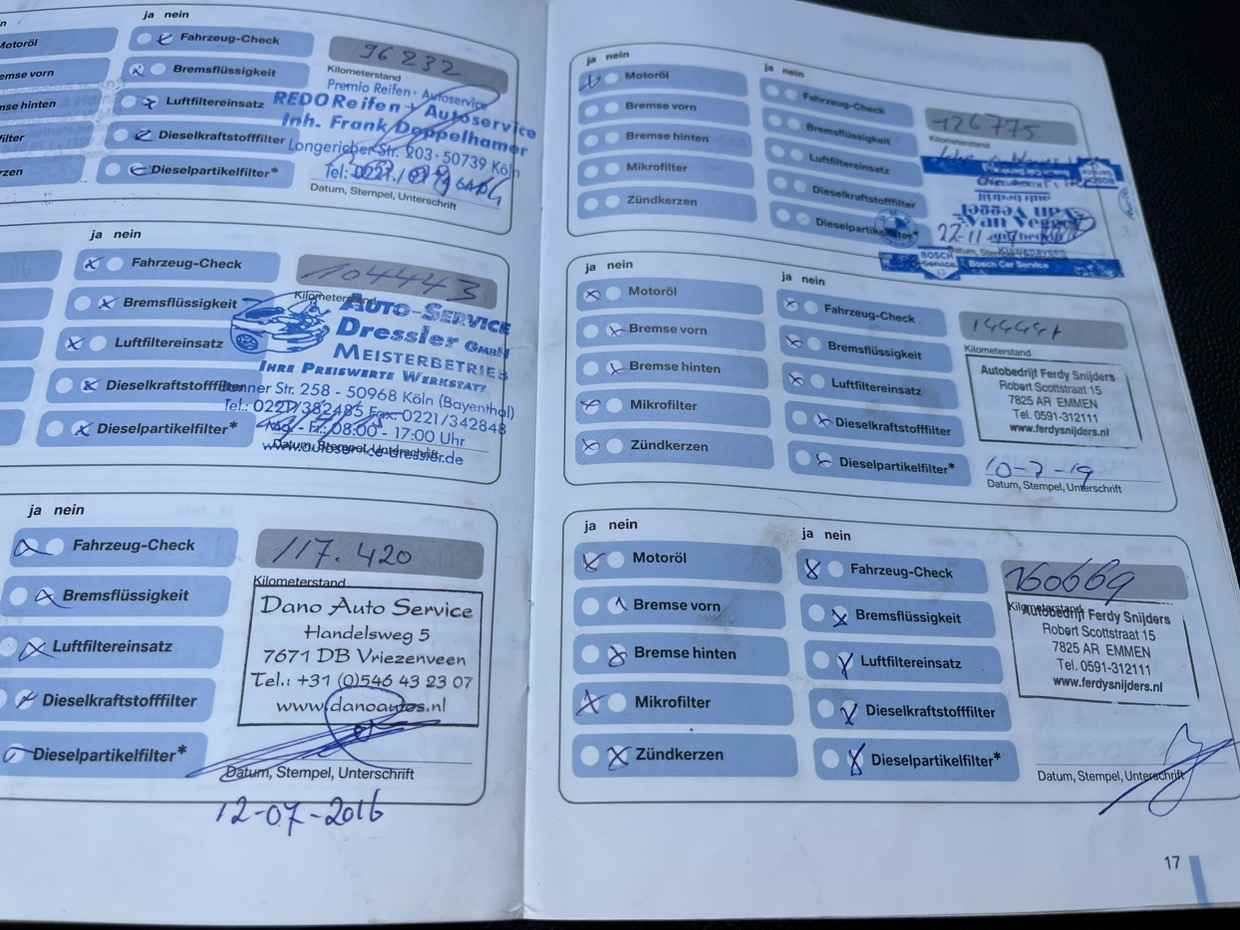 ja nein
Motoröl
Bremse vorn
Bremse hinten
Fahrzeug-Check
Bremsflüssigkeit
Luftfiltereinsatz
Dieselkraftstofffilter
Dieselpartikelfilter*
96232
Kilometerstand
Premio Reifen + Autoservice
REDO Reifen + Autoservice
Inh. Frank Doppelhamer
Longericher Str. 203 · 50739 Köln
Tel: 0221 /
Datum, Stempel, Unterschrift
ja nein
Fahrzeug-Check
Bremsflüssigkeit
Luftfiltereinsatz
Dieselkraftstofffilter
Dieselpartikelfilter*
104443
Kilometerstand
AUTO-SERVICE
Dressler GmbH
MEISTERBETRIEB
IHRE PREISWERTE WERKSTATT
Bonner Str. 258 - 50968 Köln (Bayenthal)
Tel.: 0221/382485 Fax: 0221/342848
Mo. - Fr.: 08:00 - 17:00 Uhr
www.autoservice-dressler.de
Datum, Stempel, Unterschrift
ja nein
Fahrzeug-Check
Bremsflüssigkeit
Luftfiltereinsatz
Dieselkraftstofffilter
Dieselpartikelfilter*
117.420
Kilometerstand
Dano Auto Service
Handelsweg 5
7671 DB Vriezenveen
Tel.: +31 (0)546 43 23 07
www.danoautos.nl
Datum, Stempel, Unterschrift
12-07-2016
ja nein
Motoröl
Bremse vorn
Bremse hinten
Mikrofilter
Zündkerzen
ja nein
Fahrzeug-Check
Bremsflüssigkeit
Luftfiltereinsatz
Dieselkraftstofffilter
126775
Kilometerstand
Van Vegge
22-11
BOSCH
Service
Bosch Car Service
ja nein
Motoröl
Bremse vorn
Bremse hinten
Mikrofilter
Zündkerzen
ja nein
Fahrzeug-Check
Bremsflüssigkeit
Luftfiltereinsatz
Dieselkraftstofffilter
Dieselpartikelfilter*
Kilometerstand
Autobedrijf Ferdy Snijders
Robert Scottstraat 15
7825 AR EMMEN
Tel. 0591-312111
www.ferdysnijders.nl
10-7-19
Datum, Stempel, Unterschrift
ja nein
Motoröl
Bremse vorn
Bremse hinten
Mikrofilter
Zündkerzen
ja nein
Fahrzeug-Check
Bremsflüssigkeit
Luftfiltereinsatz
Dieselkraftstofffilter
Dieselpartikelfilter*
160669
Kilometerstand
Autobedrijf Ferdy Snijders
Robert Scottstraat 15
7825 AR EMMEN
Tel. 0591-312111
www.ferdysnijders.nl
Datum, Stempel, Unterschrift
17